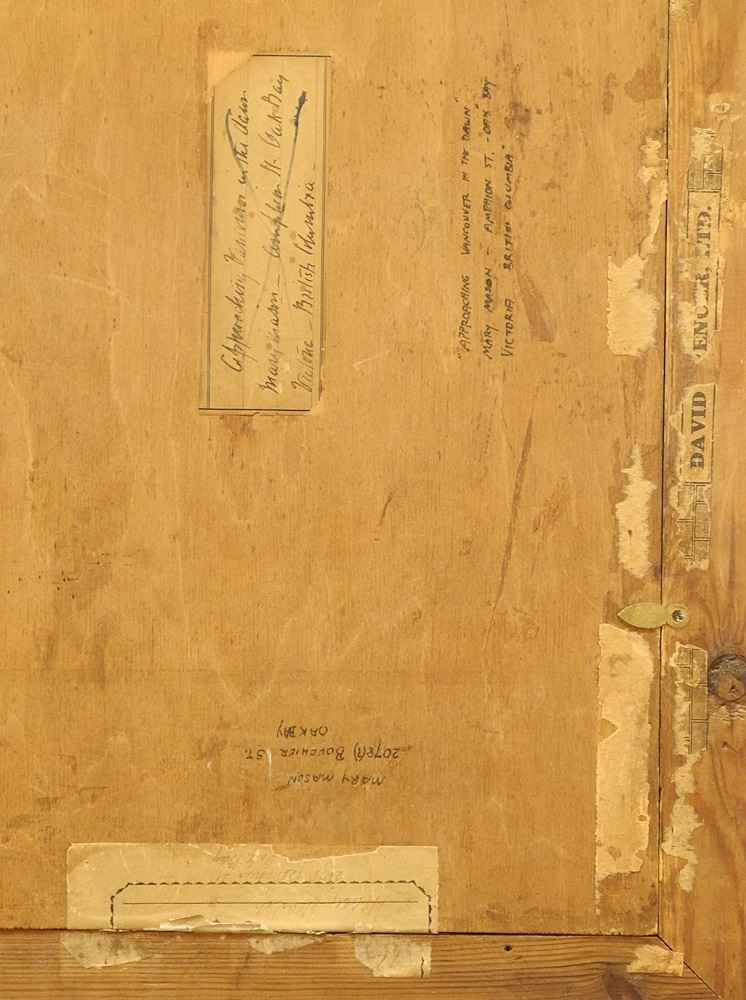 Approaching Vancouver in the dawn
Mary Mason – Amphion St. Oak Bay
Victoria – British Columbia –
"APPROACHING VANCOUVER IN THE DAWN"
MARY MASON – AMPHION ST. - OAK BAY
VICTORIA BRITISH COLUMBIA"
DAVID ENC R, LTD.
MARY MASON
2078(?) BOUCHIER ST.
OAK BAY